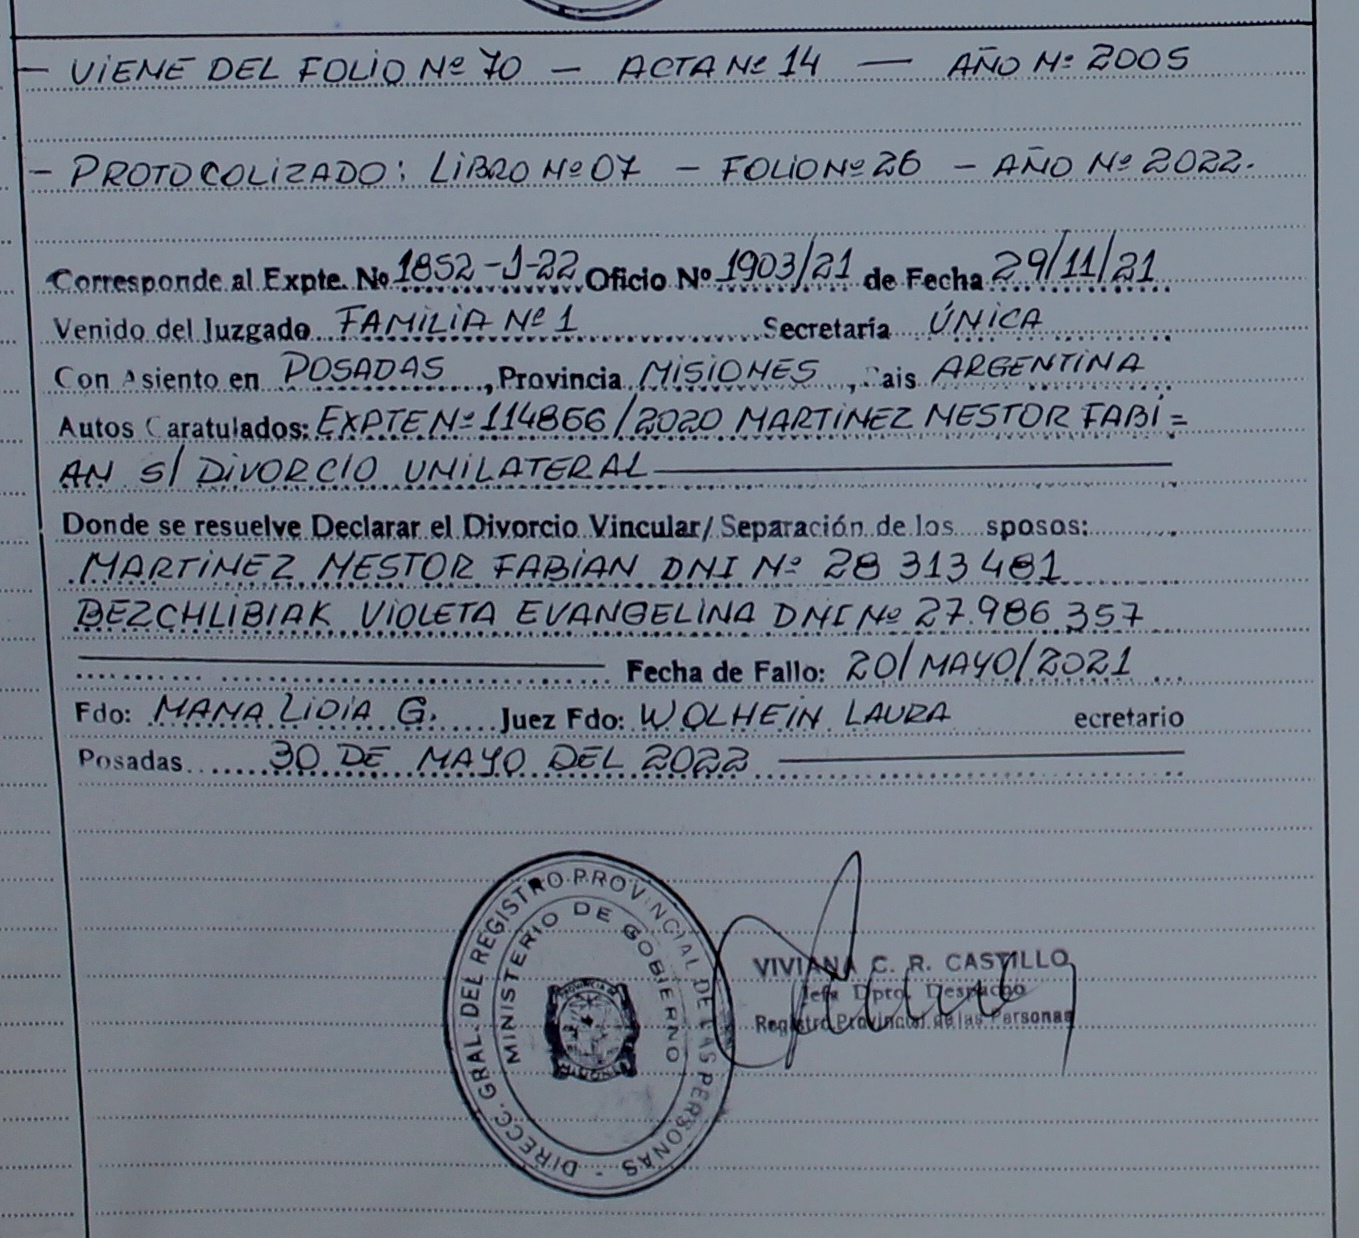 — VIENE DEL FOLIO Nº 70 — ACTA Nº 14 — AÑO Nº 2005
— PROTOCOLIZADO: LIBRO Nº 07 — FOLIO Nº 26 — AÑO Nº 2022.
Corresponde al Expte. Nº 1852-J-22 Oficio Nº 1903/21 de Fecha 29/11/21
Venido del Juzgado FAMILIA Nº 1 Secretaría ÚNICA
Con Asiento en POSADAS, Provincia MISIONES, Pais ARGENTINA
Autos Caratulados: EXPTE Nº 114866/2020 MARTINEZ NESTOR FABI=
AN S/ DIVORCIO UNILATERAL
Donde se resuelve Declarar el Divorcio Vincular/Separación de los sposos:
MARTINEZ NESTOR FABIAN DNI Nº 28 313 481
BEZCHLIBIAK VIOLETA EVANGELINA DNI Nº 27.986 357
Fecha de Fallo: 20/MAYO/2021
Fdo: MANA LIDIA G. Juez Fdo: WOLHEIN LAURA ecretario
Posadas 30 DE MAYO DEL 2022
DIRECC. GRAL. DEL REGISTRO PROVINCIAL DE LAS PERSONAS -
MINISTERIO DE GOBIERNO
VIVIANA C. R. CASTILLO
Jefa Dpto. Despacho
Registro Provincial de las Personas